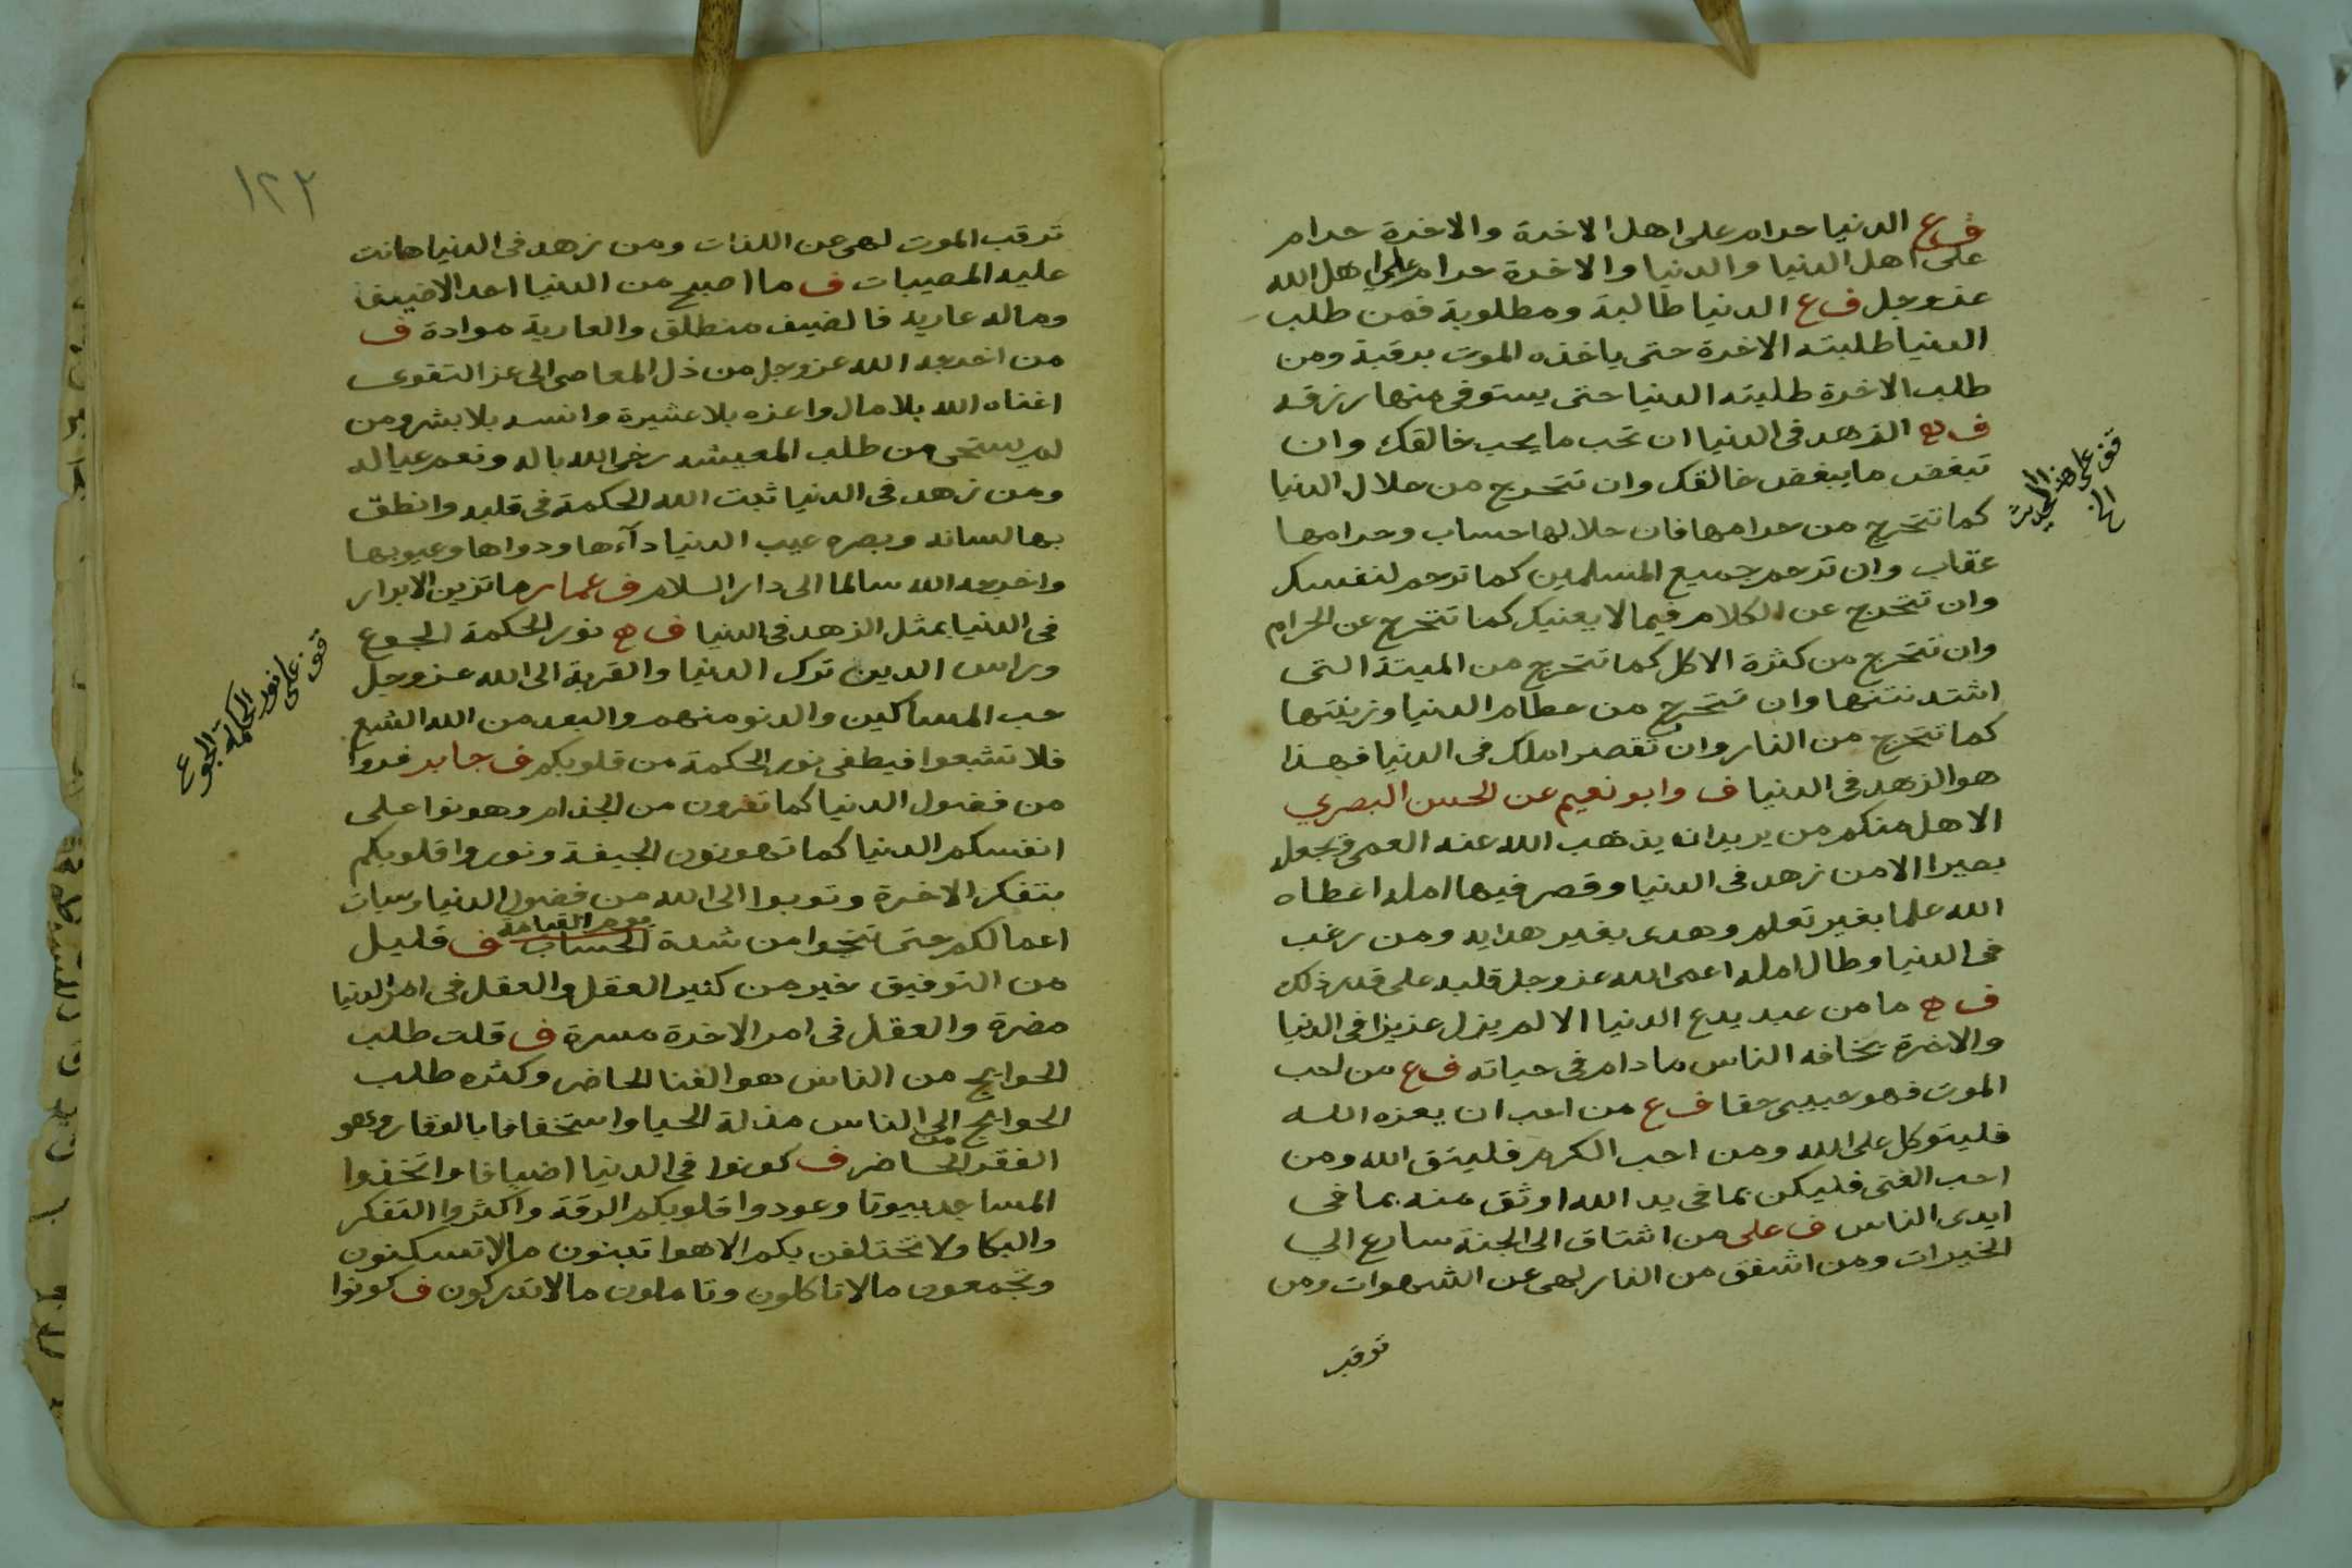 ف ع الدنيا حرام على اهل الاخرة والاخرة حرام
على اهل الدنيا والدنيا والاخرة حرام على اهل الله
عز وجل ف ع الدنيا طالبة ومطلوبة فمن طلب
الدنيا طلبته الاخرة حتى ياخذه الموت برقبة ومن
طلب الاخرة طلبته الدنيا حتى يستوفي منها رزقه
ف ه الزهد في الدنيا ان تحب ما يحب خالقك وان
تبغض ما يبغض خالقك وان تتحرج من حلال الدنيا
كما تتحرج من حرامها فان حلالها حساب وحرامها
عقاب وان ترحم جميع المسلمين كما ترحم لنفسك
وان تتحرج عن الكلام فيما لا يعنيك كما تتحرج عن الحرام
وان تتحرج من كثرة الاكل كما تتحرج من الميتة التي
اشتد نتنها وان تتحرج من حطام الدنيا وزينتها
كما تتحرج من النار وان تقصر املك في الدنيا فهذا
هو الزهد في الدنيا ف وابو نعيم عن الحسن البصري
الا هل منكم من يريد ان يذهب الله عنه العمى ويجعله
بصيرا الا من زهد في الدنيا وقصر فيها امله اعطاه
الله علما بغير تعلم وهدى بغير هداية ومن رغب
في الدنيا وطال امله اعمى الله عز وجل قلبه على قدر ذلك
ف ه ما من عبد يدع الدنيا الا لم يزل عزيزا في الدنيا
والاخرة يخافه الناس ما دام في حياته ف ع من احب
الموت فهو حبيبي حقا ف ع من احب ان يعزه الله
فليتوكل على الله ومن احب الكرم فليتق الله ومن
احب الغنى فليكن بما في يد الله اوثق منه بما في
ايدى الناس ف على من اشتاق الى الجنة سارع الي
الخيرات ومن اشفق من النار لهى عن الشهوات ومن
ترقب
قف على هذا الحديث
١٢٢
ترقب الموت لهى عن اللذات ومن زهد في الدنيا هانت
عليه المصيبات ف ما اصبح من الدنيا احد الا ضيفا
وماله عارية فالضيف منطلق والعارية موادة ف
من اخرجه الله عز وجل من ذل المعاصى الى عز التقوى
اغناه الله بلا مال واعزه بلا عشيرة وانسه بلا بشر ومن
لم يستحى من طلب المعيشه رخى الله باله ونعم عياله
ومن زهد في الدنيا ثبت الله الحكمة في قلبه وانطق
بها لسانه وبصره عيب الدنيا دآءها ودواها وعيوبها
واخرجه الله سالما الى دار السلام ف عمار ما تزين الابرار
في الدنيا بمثل الزهد في الدنيا ف ه نور الحكمة الجوع
وراس الدين ترك الدنيا والقربة الى الله عز وجل
حب المساكين والدنو منهم والبعد من الله الشبع
فلا تشبعوا فيطفى نور الحكمة من قلوبكم ف جابر فروا
من فضول الدنيا كما تفرون من الجذام وهونوا على
انفسكم الدنيا كما تهونون الجيفة ونوروا قلوبكم
بتفكر الاخرة وتوبوا الى الله من فضول الدنيا وسيات
اعمالكم حتى تنجوا من شدة الحساب يوم القيامة ف قليل
من التوفيق خير من كثير العقل والعقل في امر الدنيا
مضرة والعقل في امر الاخرة مسرة ف قلت طلب
الحوايج من الناس هو الغنا الحاضر وكثره طلب
الحوايج الى الناس مذلة الحيا واستخفافا بالوقار وهو
الفقر الحاضر ف كونوا في الدنيا اضيافا واتخذوا
المساجد بيوتا وعودوا قلوبكم الرقة واكثروا التفكر
والبكا ولا تختلفن بكم الاهوا تبنون مالا تسكنون
وتجمعون مالا تاكلون وتاملون مالا تدركون ف كونوا
قف على نور الحكمة الجوع